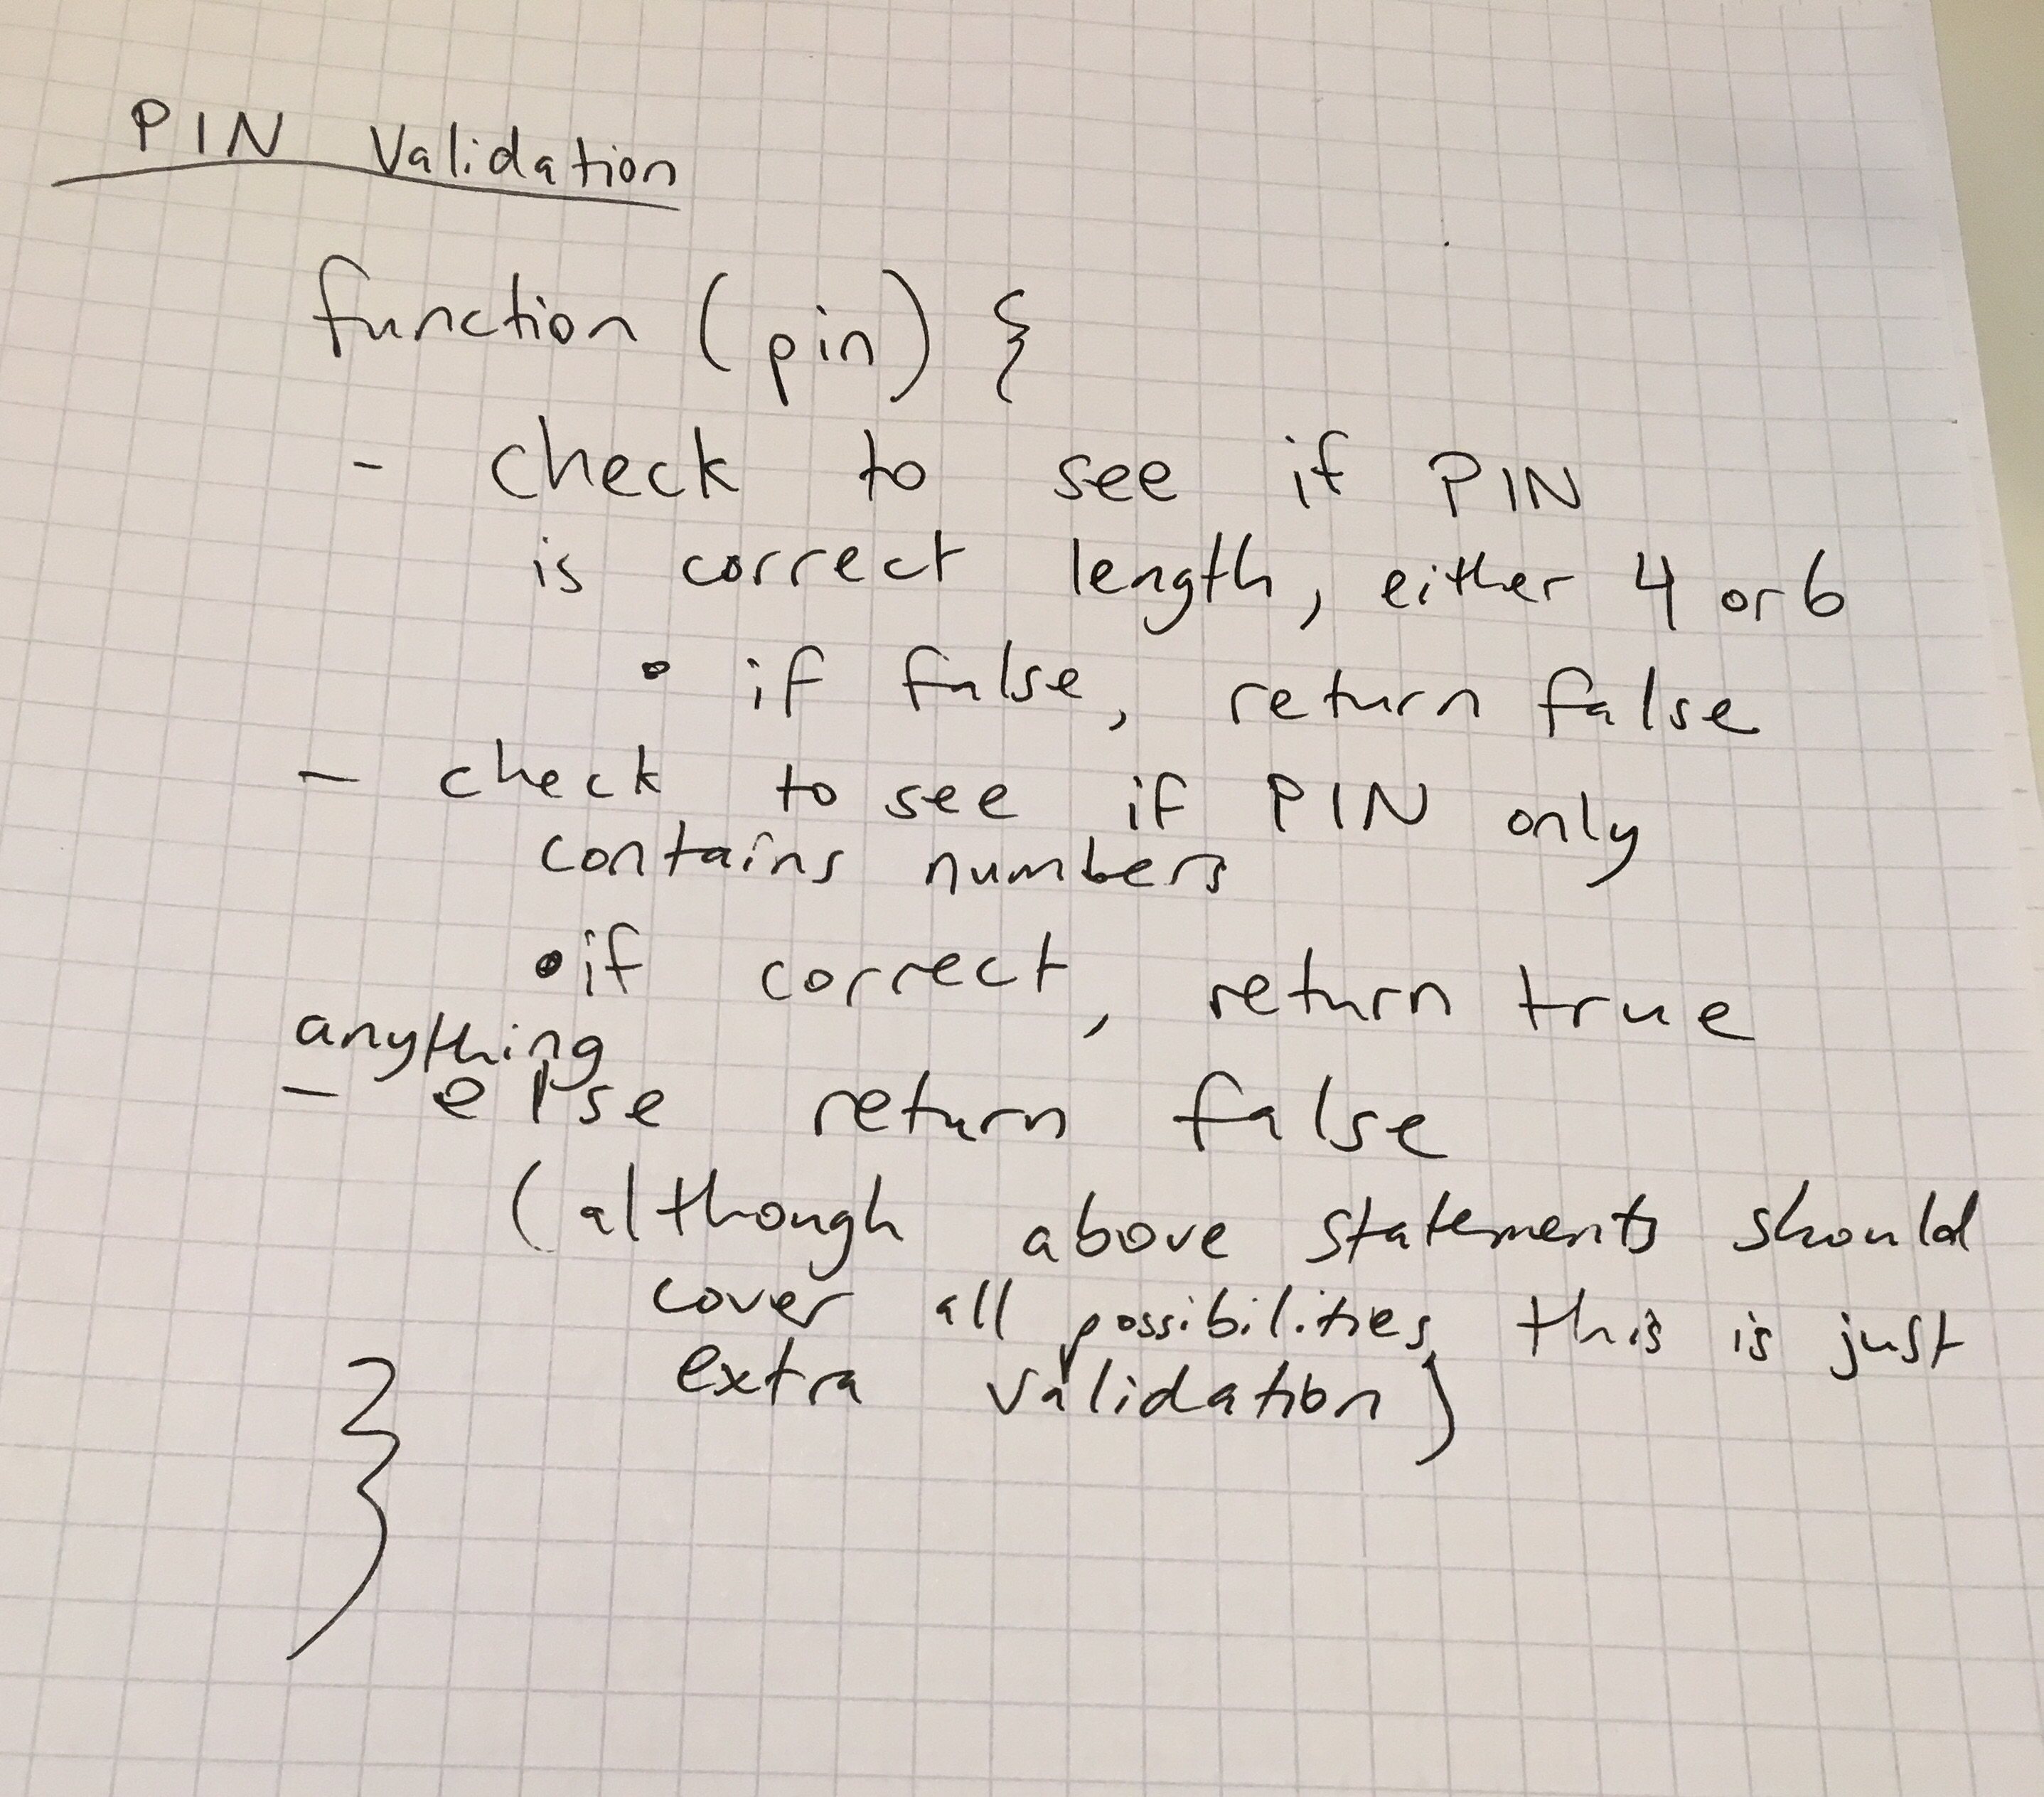 PIN Validation
function (pin) {
- check to see if PIN
is correct length, either 4 or 6
• if false, return false
- check to see if PIN only
contains numbers
• if correct, return true
anything
- else return false
(although above statements should
cover all possibilities, this is just
extra validation)
}